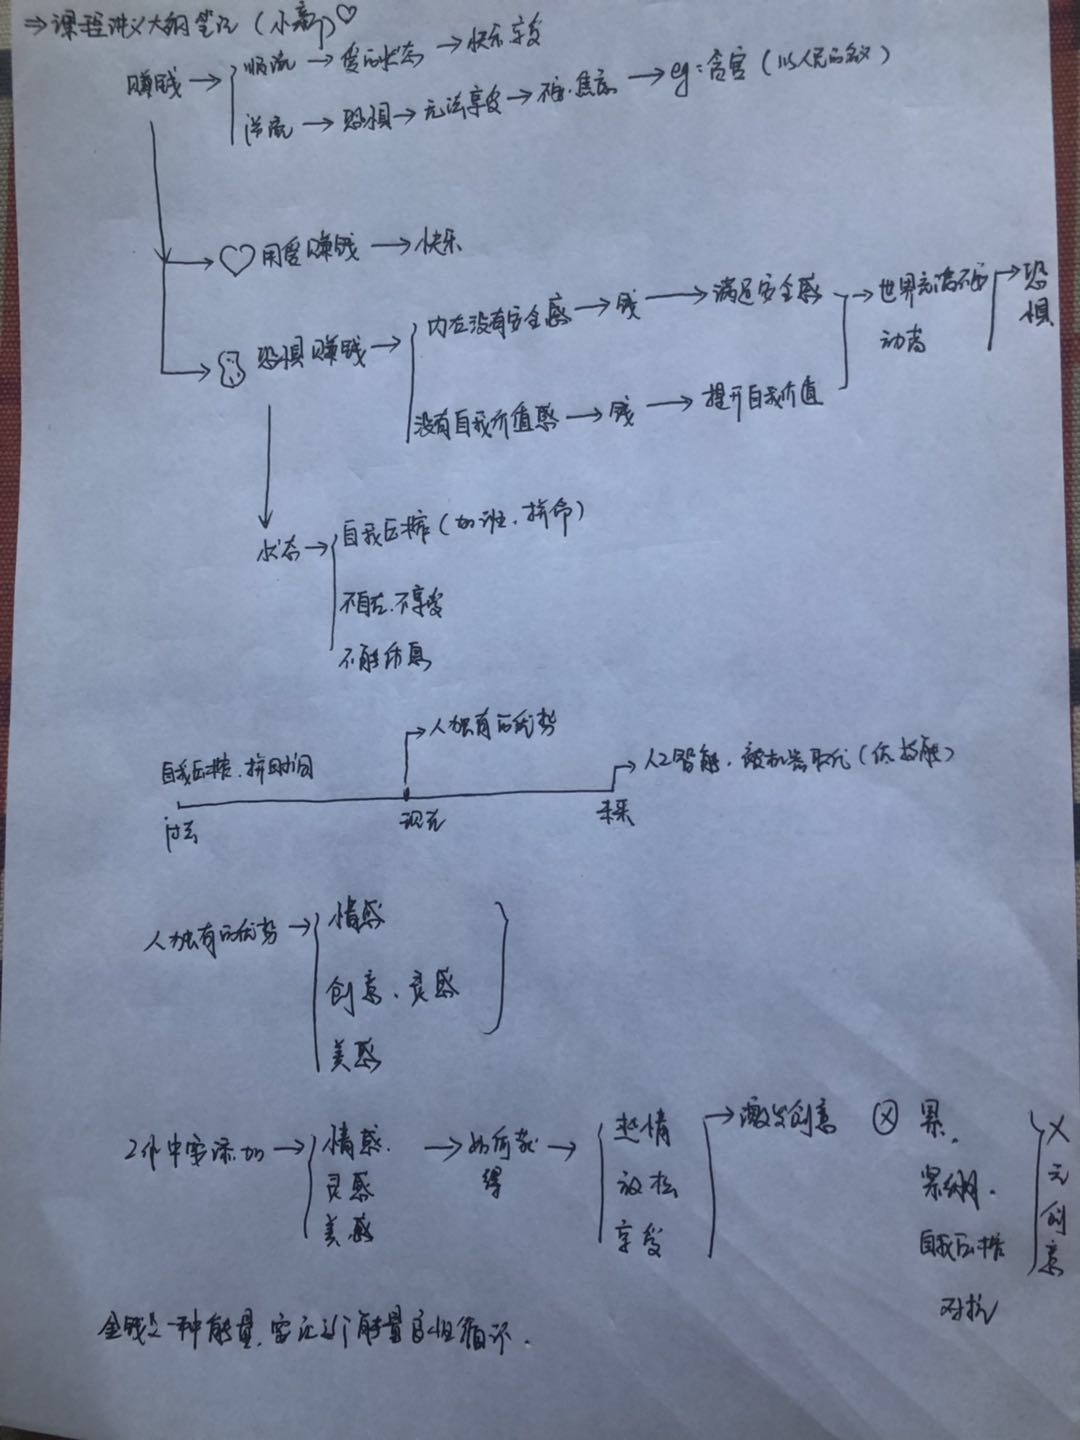 ⇒课程讲义大纲笔记(小新)♡
赚钱→ 顺流→爱的状态→快乐享受
逆流→恐惧→无法享受→不安.焦虑→eg:贪官(以人民的名义)
♡用爱赚钱→快乐
恐惧赚钱→ 内在没有安全感→钱→满足安全感 →世界充满不安 →恐惧
动荡
没有自我价值感→钱→提升自我价值
状态→ 自我压榨(加班.拼命)
不自在.不享受
不能休息
→人独有的优势
自我压榨.拼时间 →人工智能.被机器取代(低技能)
过去 现在 未来
人独有的优势→ 情感
创意.灵感
美感
工作中要添加→ 情感. →如何获得→ 热情 →激发创意 ⊗ 累. X
灵感 放松 紧绷. 无
美感 享受 自我压榨 创意
对抗
金钱是一种能量.要让这个能量良性循环.